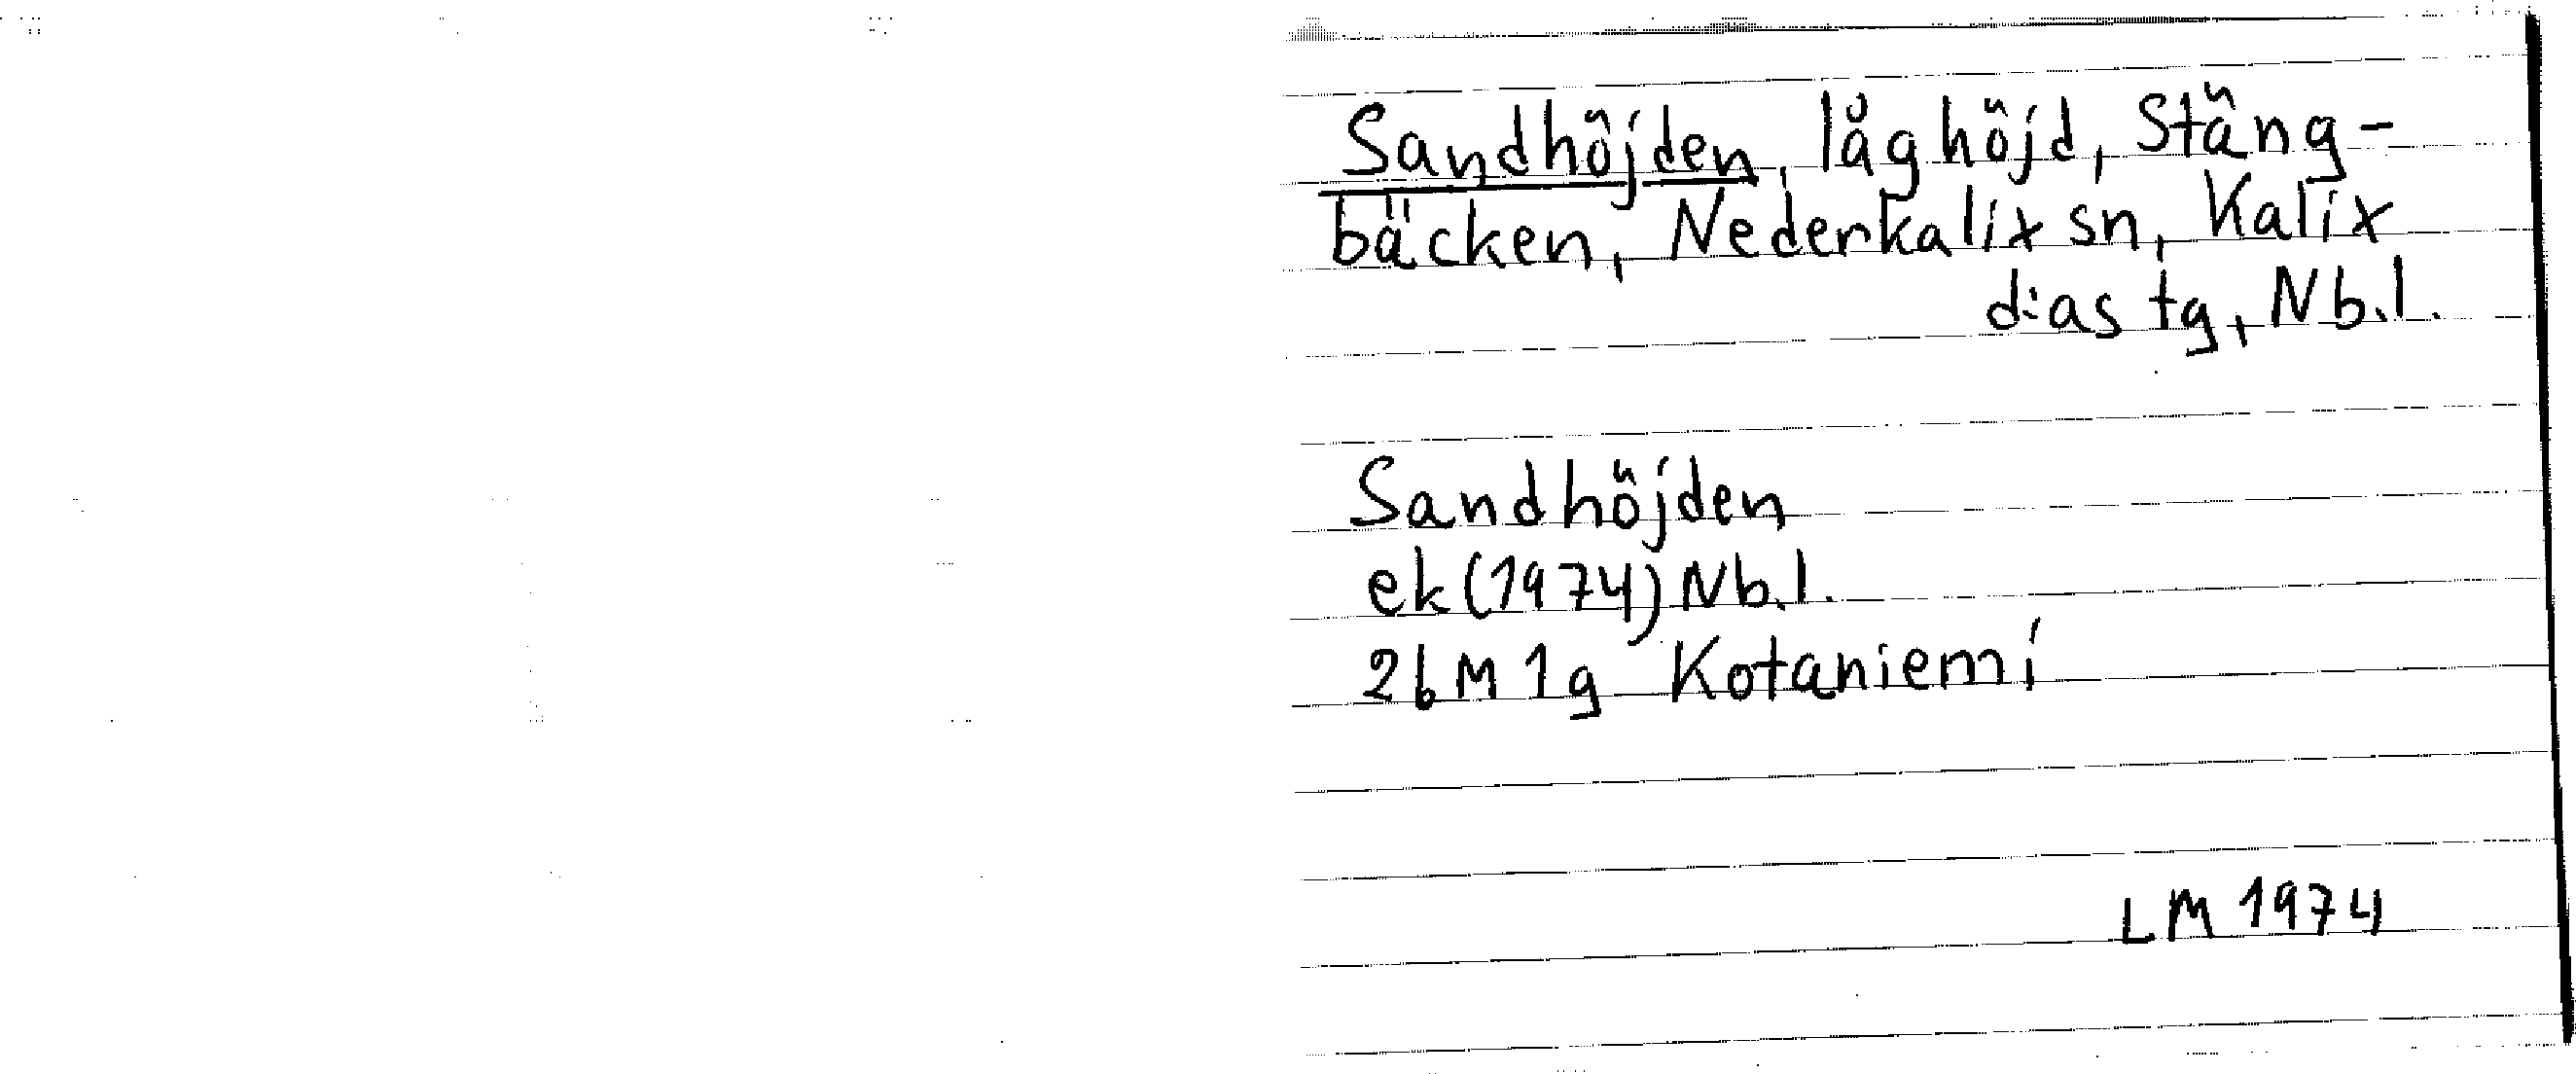 Sandhöjden, låg höjd, Stäng-
bäcken, Nederkalix sn, Kalix
d:as tg, Nb.l.
Sandhöjden
ek (1974) Nb.l.
26 M 1g Kotaniemi
LM 1974